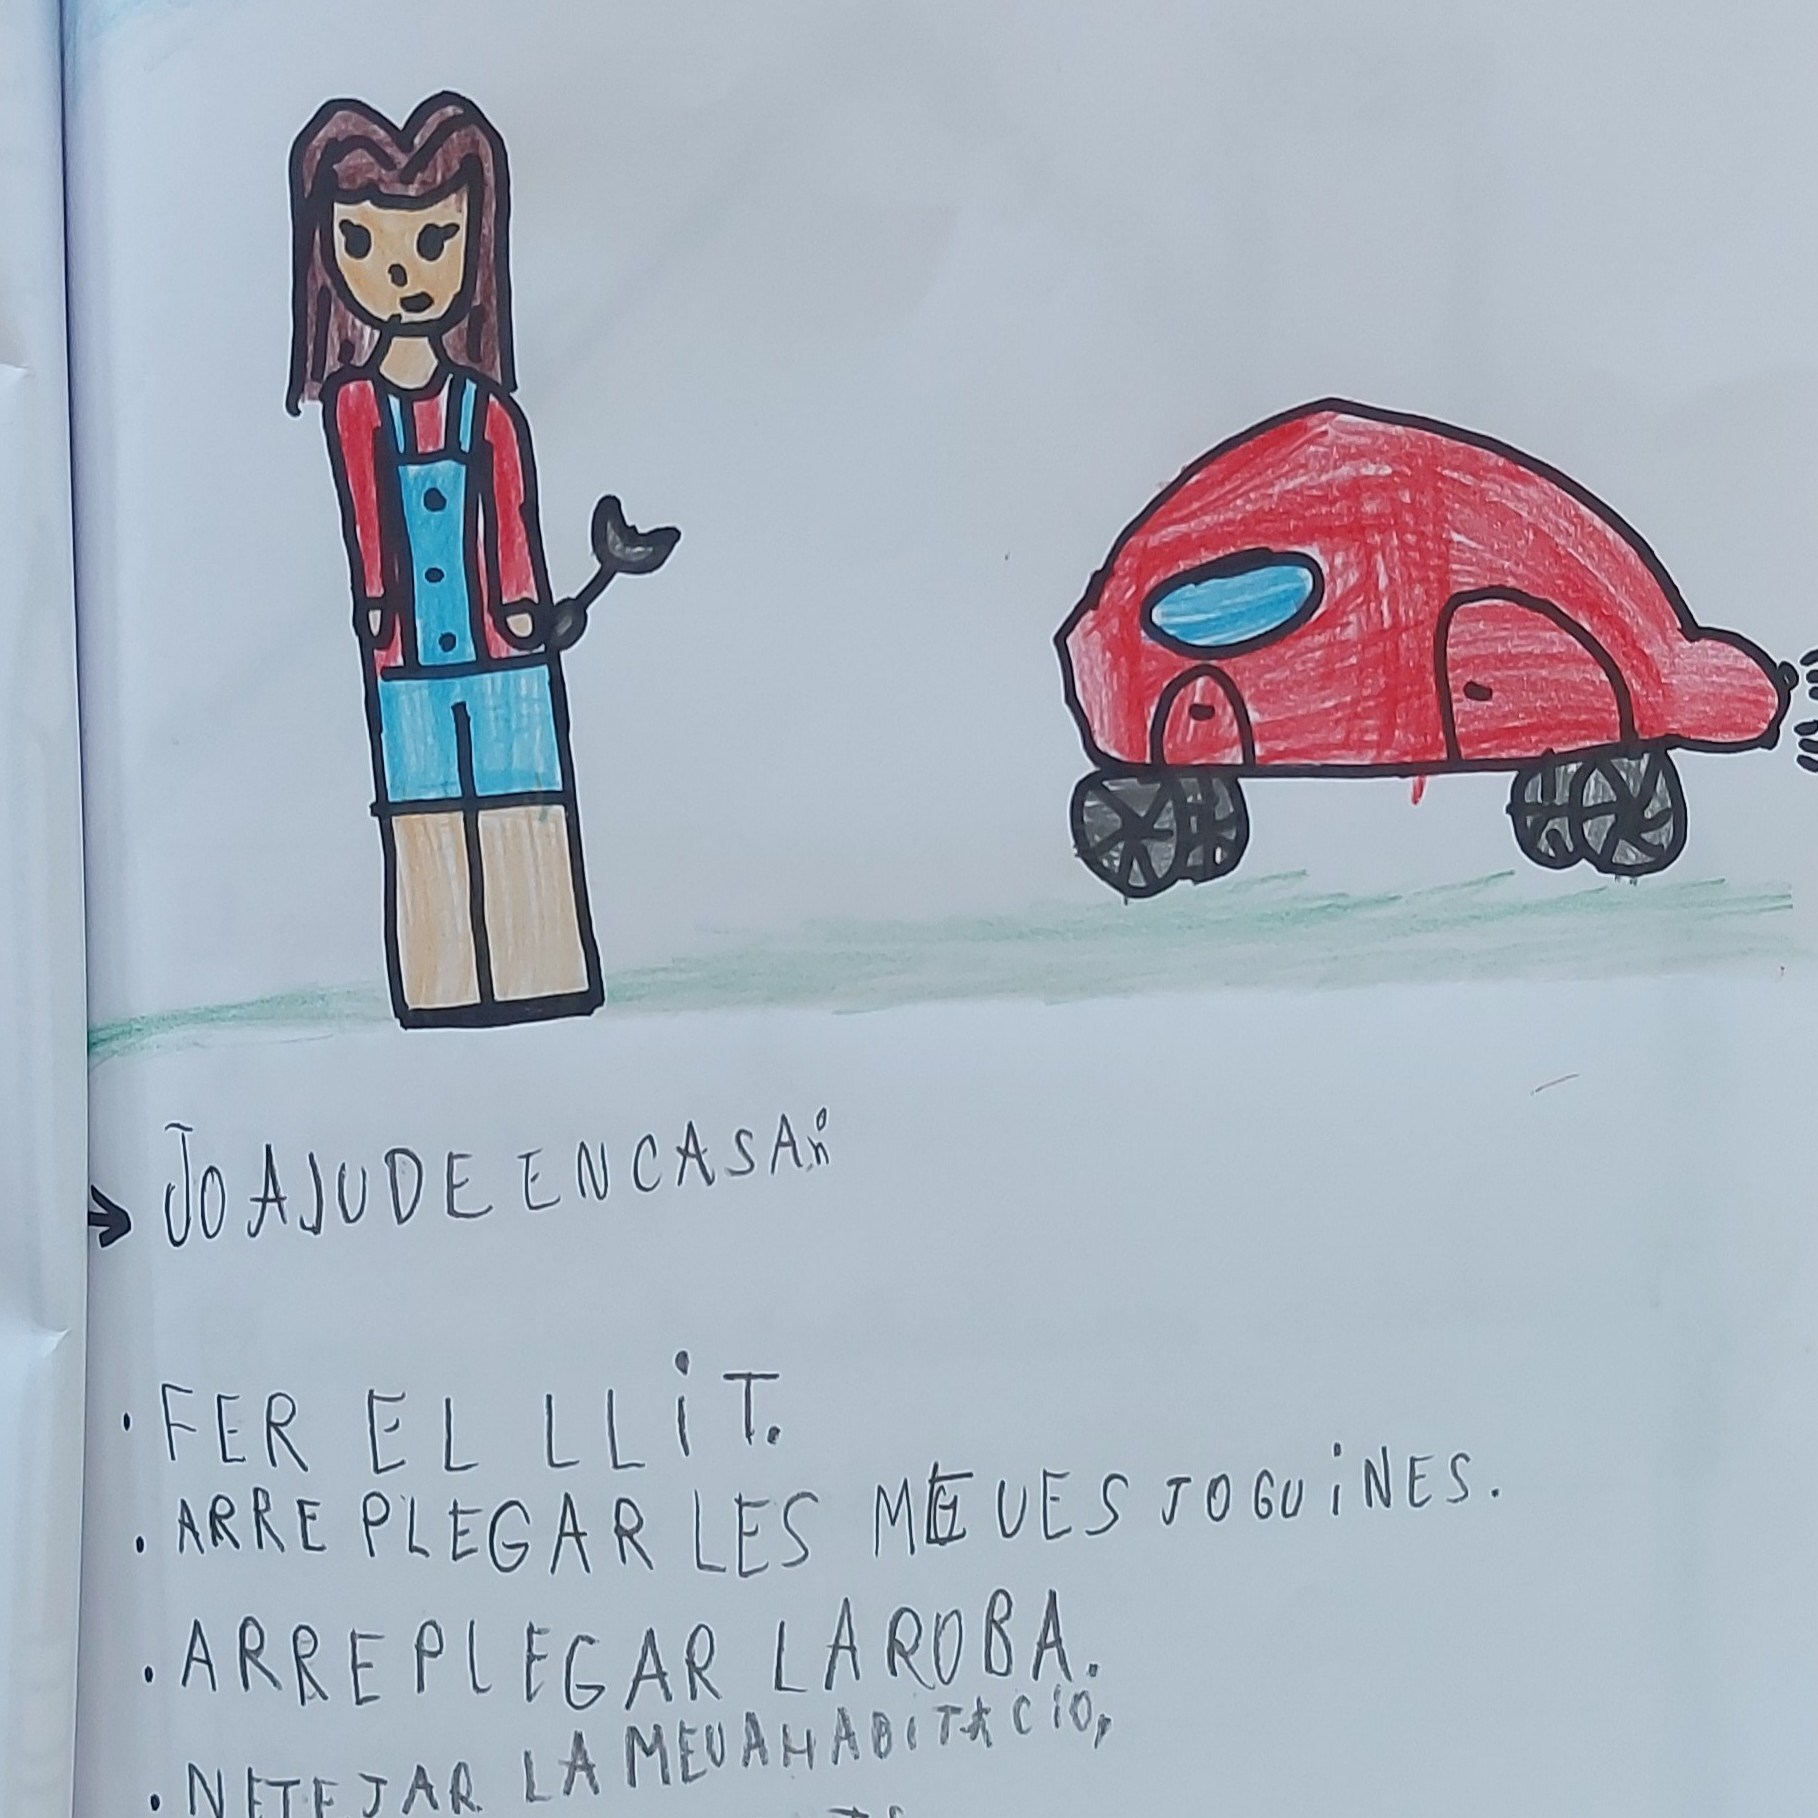 JO AJUDE EN CASA:
· FER EL LLiT.
· ARREPLEGAR LES MEUES JOGUiNES.
· ARREPLEGAR LA ROBA.
· NETEJAR LA MEUA HABiTACiO,